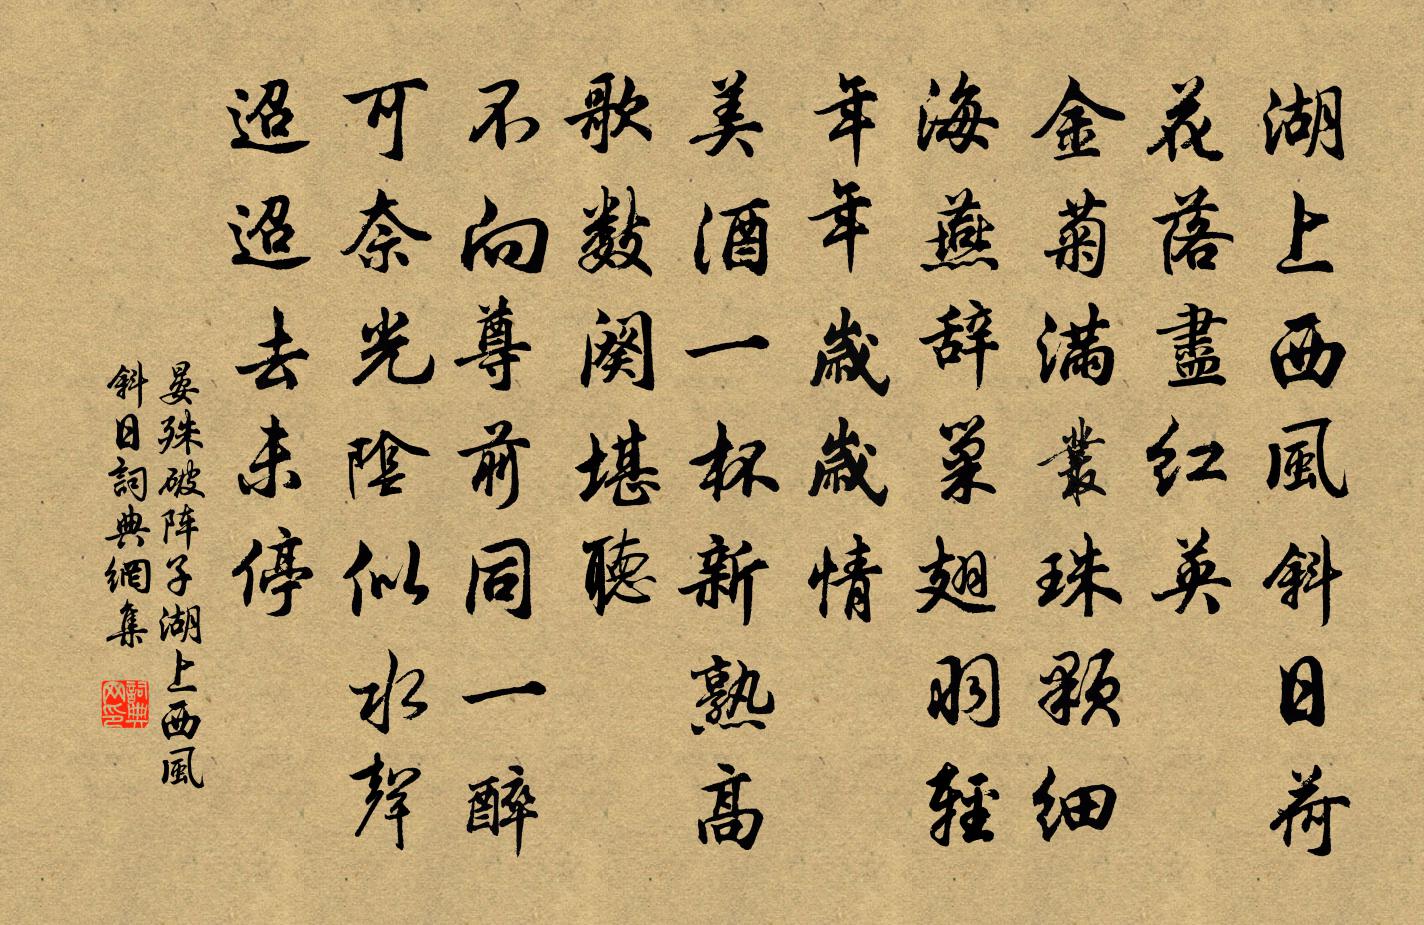 湖上西風斜日荷
花落盡红英
金菊滿叢珠顆細
海燕辞巢翅羽輕
年年歲歲情
美酒一杯新熟高
歌数闋堪聽
不向尊前同一醉
可奈光陰似水聲
迢迢去未停
晏殊破阵子湖上西風
斜日詞典網集
詞典网印